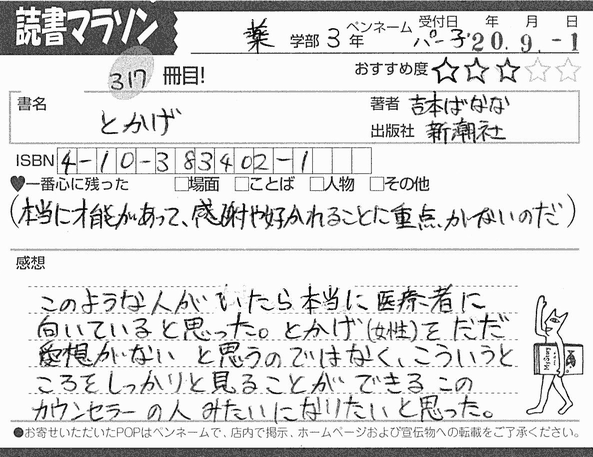 読書マラソン
薬 学部 3 年 ペンネーム パー子 受付日 年 月 日 '20.9.-1
317 冊目! おすすめ度 ★★★☆☆
書名 とかげ
著者 吉本ばなな
出版社 新潮社
ISBN 4-10-383402-1
♥一番心に残った □場面 □ことば □人物 □その他
(本当に才能があって、感謝や好かれることに重点がないのだ)
感想
このような人がいたら本当に医療者に
向いていると思った。とかげ(女性)をただ
愛想がない と思うのではなく、こういうと
ころをしっかりと見ることができるこの
カウンセラーの人みたいになりたいと思った。
●お寄せいただいたPOPはペンネームで、店内で掲示、ホームページおよび宣伝物への転載をご了承ください。